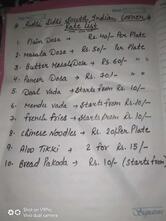 Rate List
1. Plain Dosa → Rs. 40/- Per Plate
2. Masala Dosa → Rs. 50/- Per Plate
3. Butter Masala Dosa → Rs. 60/- "
4. Paneer Dosa → Rs. 70/- "
5. Daal Vada → Starts from Rs. 10/-
6. Mendu vada → Starts from Rs. 10/-
7. French Fries → Starts from Rs. 10/-
8. Chinese Noodles → Rs. 20/- Per Plate
9. Aloo Tikki → 2 for Rs. 15/-
10. Bread Pakoda → Rs. 10/- (Starts from)